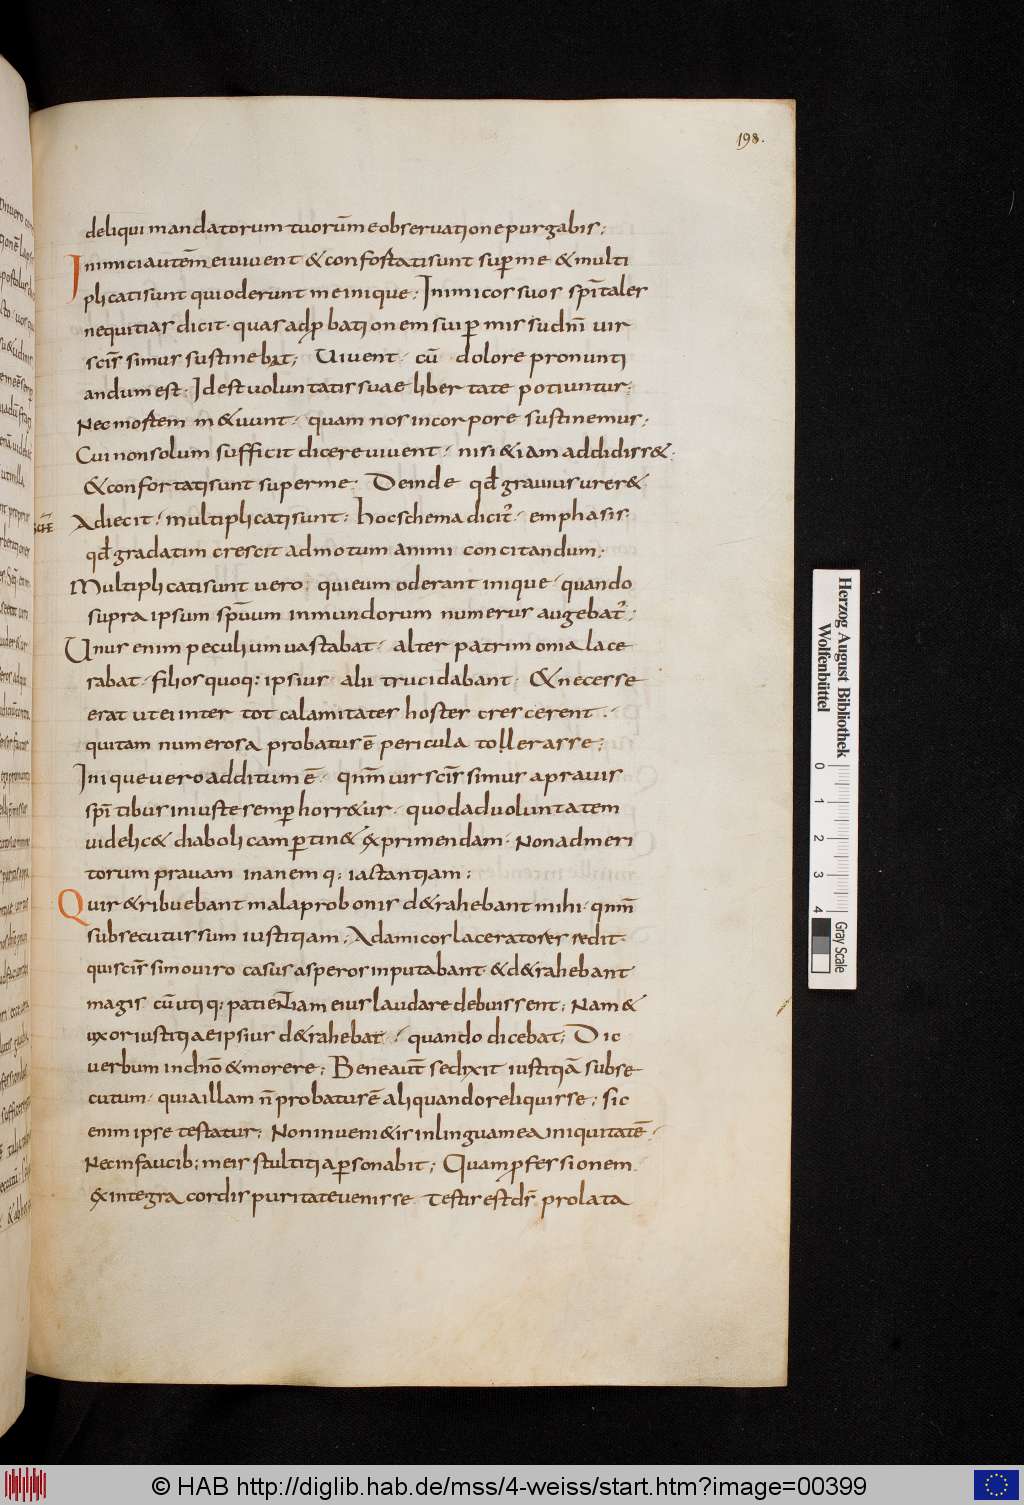 198.
deliqui mandatorum tuorū me observatione purgabis;
Inimici autē mei vivent & confortati sunt super me & multi
plicati sunt qui oderunt me inique; Inimicos suos sp̄itales
nequitias dicit. quas ad pbationem sui p̱missu dn̄i vir
scīs simus sustinebat; Vivent. cū dolore pronunti
andum est. Id est voluntatis suae libertate potiuntur;
Nec mortem m&uunt. quam nos in corpore sustinemus;
Cui non solum sufficit dicere vivent. nisi &iam addidiss&.
&confortati sunt super me. Deinde qđ gravius urer&
SCHE
Adiecit. multiplicati sunt; hoc schema dicit̄. emphasis.
qđ gradatim crescit ad motum animi concitandum;
Multiplicati sunt vero qui eum oderant inique. quando
supra ipsum sp̄uum inmundorum numerus augebat̄;
Unus enim peculium vastabat. alter patrimonia lace
rabat. filios quoq; ipsius alii trucidabant. & necesse
erat ut ei inter tot calamitates hostes crescerent.
qui tam numerosa probatus ē pericula tollerasse;
Inique vero additum ē. qnm̄ vir scīs simus a pravis
sp̄itibus iniuste semp̱ horr&ur. quod ad voluntatem
videlic& diaboli eam p̱tin& exprimendam. Non ad meri
torum pravam inanemq; iactantiam;
Qui r&ribuebant mala pro bonis d&rahebant mihi. qnm̄
subsecutus sum iustitiam; Ad amicos laceratores redit.
qui scīs simo viro casus asperos inputabant. & d&rahebant
magis cū utiq; patientiam eius laudare debuissent; Nam &
uxor iustitiae ipsius d&rahebat. quando dicebat; Dic
verbum in dn̄o & morere; Bene aut̄ se dixit iustitiā subse
cutum. quia illam n̄ probatus ē aliquando reliquisse; sic
enim ipse testatur; Non inveni&is in lingua mea iniquitatē.
Nec in faucib; meis stultitia p̱sonabit; Quam pfessionem
ex integra cordis puritate venisse testis est dś prolata
Herzog August Bibliothek
Wolfenbüttel
0 1 2 3 4
Gray Scale
© HAB http://diglib.hab.de/mss/4-weiss/start.htm?image=00399